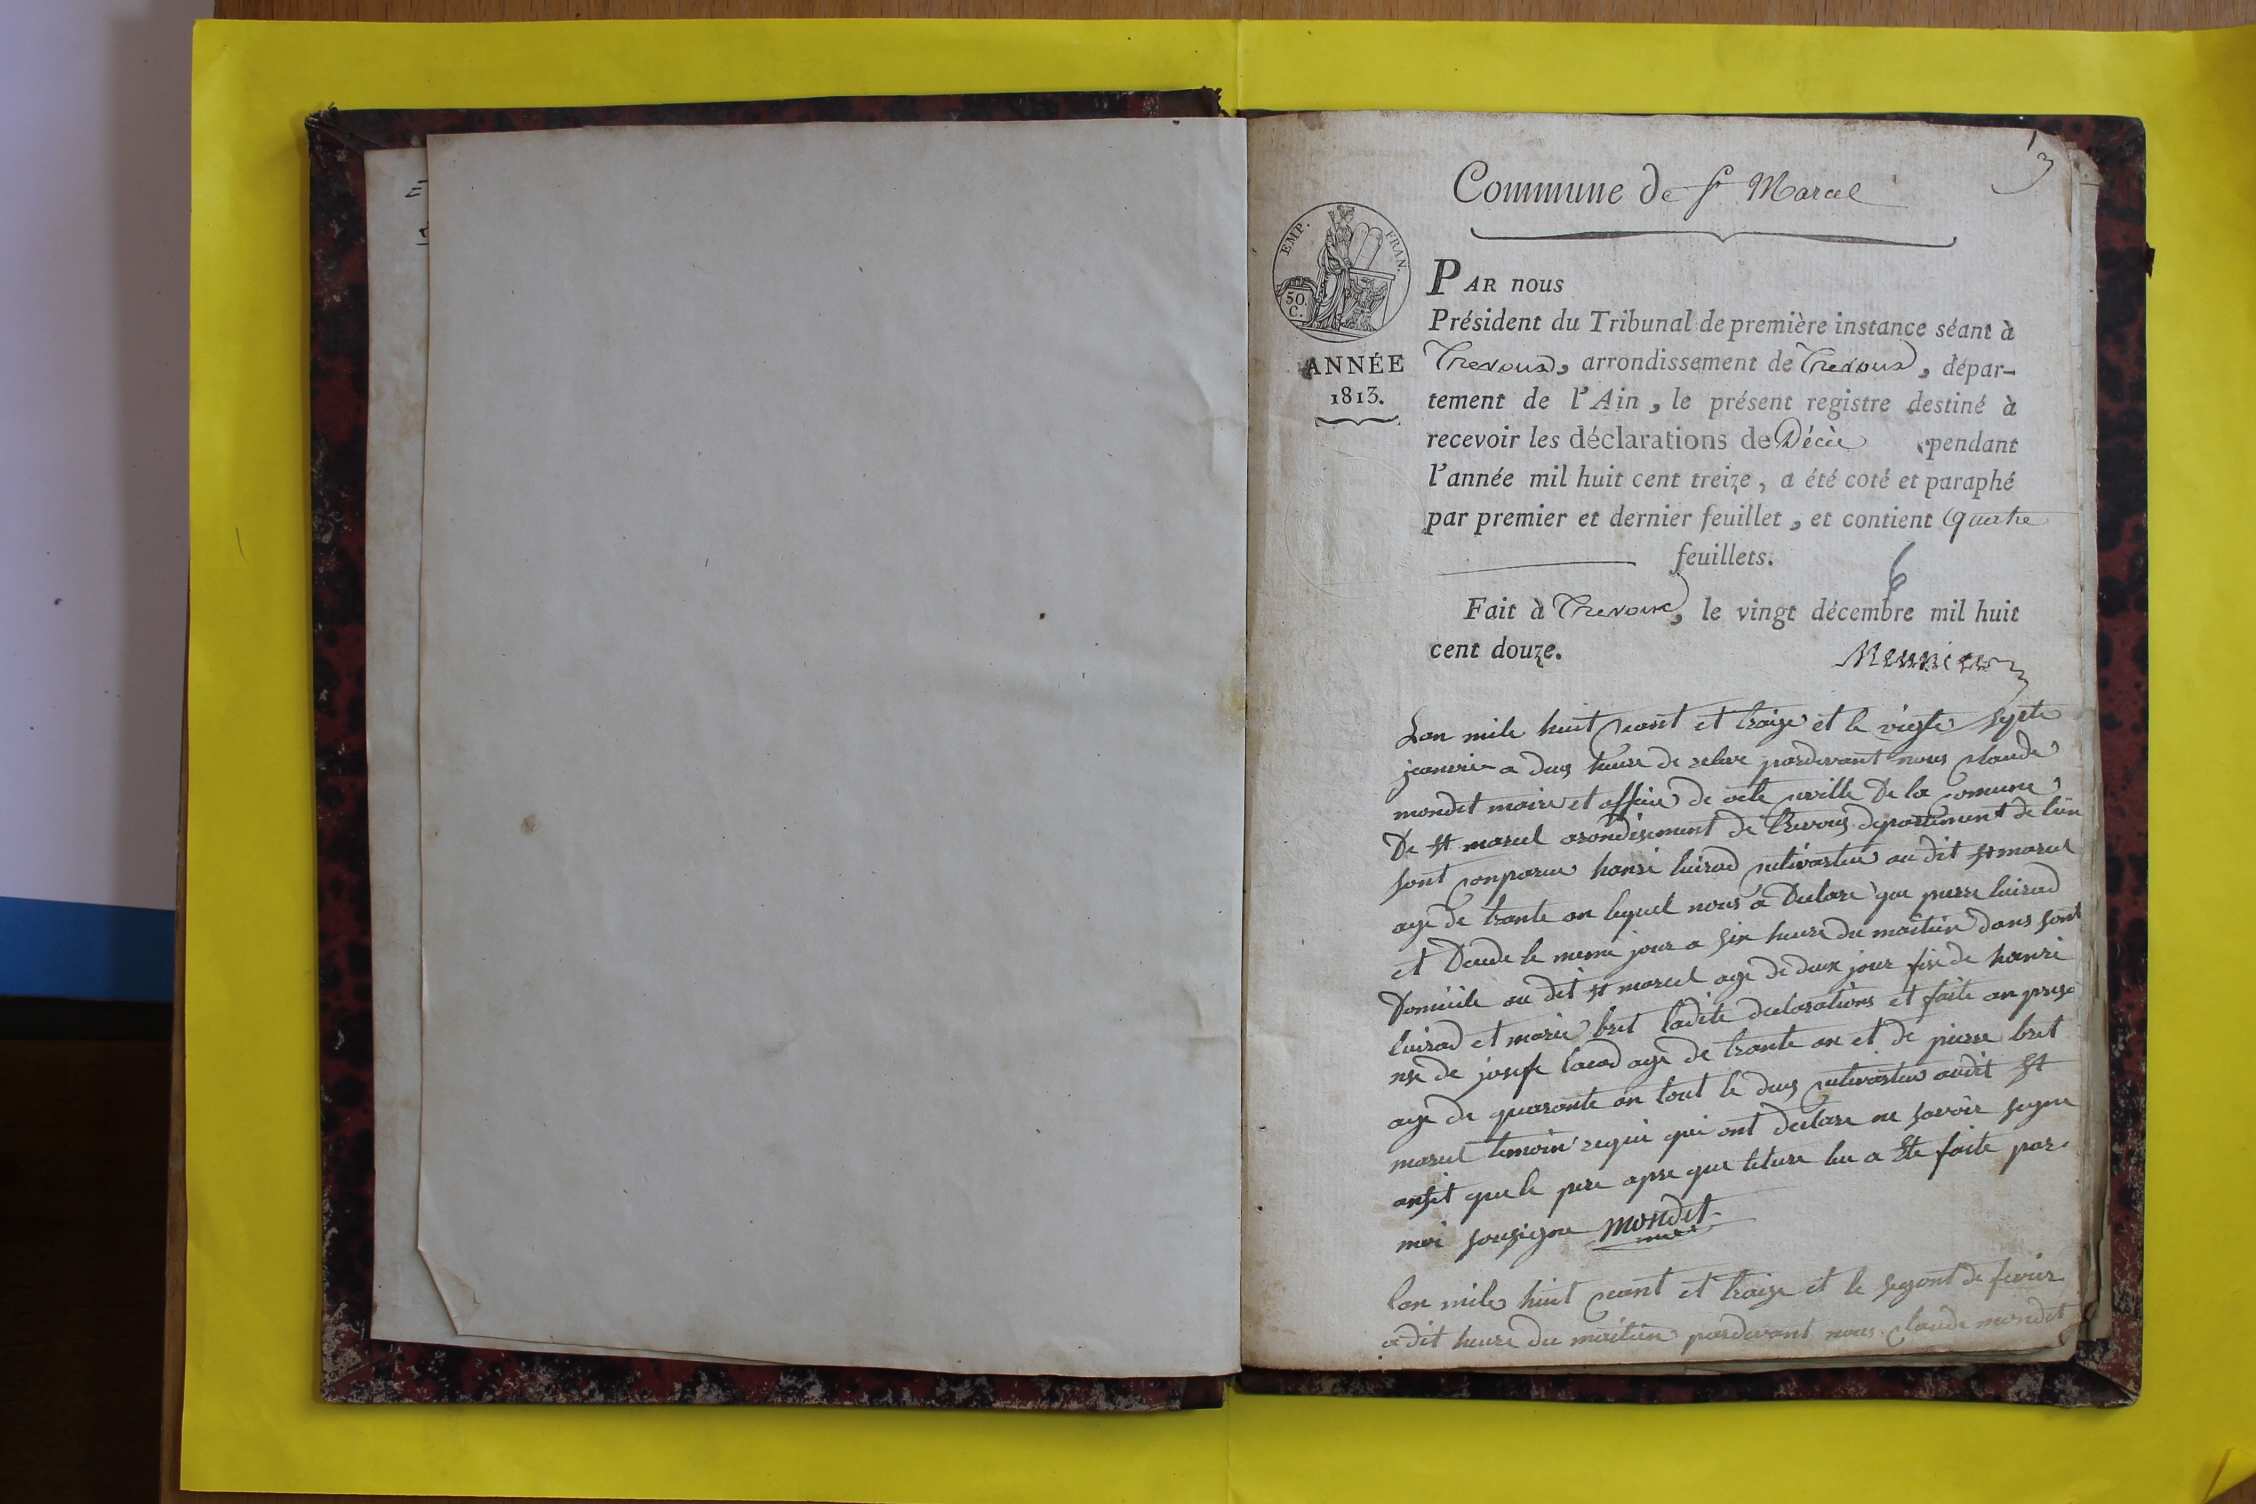 3
Commune de St Marcel
EMP. FRAN.
50.
C.
ANNÉE
1813.
PAR nous
Président du Tribunal de première instance séant à
Trevoux, arrondissement de Trevoux, dépar-
tement de l'Ain, le présent registre destiné à
recevoir les déclarations de Décès pendant
l'année mil huit cent treize, a été coté et paraphé
par premier et dernier feuillet, et contient quatre
feuillets.
Fait à Trevoux, le vingt décembre mil huit
cent douze.
Meunier
Lan mile huit cant et traize et le viegte septe
janvrie a dug heure de relve pardevant nous claude
mondet maire et officie de acte civille De la comune
De st marcel arondisement de trevoug departement de lin
sont conparue hanri luirad cultivateur au dit st marcel
age de trante an lequel nous a Declare que pierre luirad
et Decede le meme jour a six heure du maitin dans sont
Domicile au dit st marcel age de deux jour fis de hanri
luirad et marie bret ladite declarations et faite an prese
nse de josefe age de trante an et de pierre bret
age de quarante an tout le dug cultivateur audit st
marcel temoin requi qui ont declare ne savoir signe
ansit que le pere apre que leture lu a Ete faite par
moi sousigne mondet
maire
lan mile huit cant et traize et le segont de fevier
a dit heure du maitin pardevant nous claude mondet